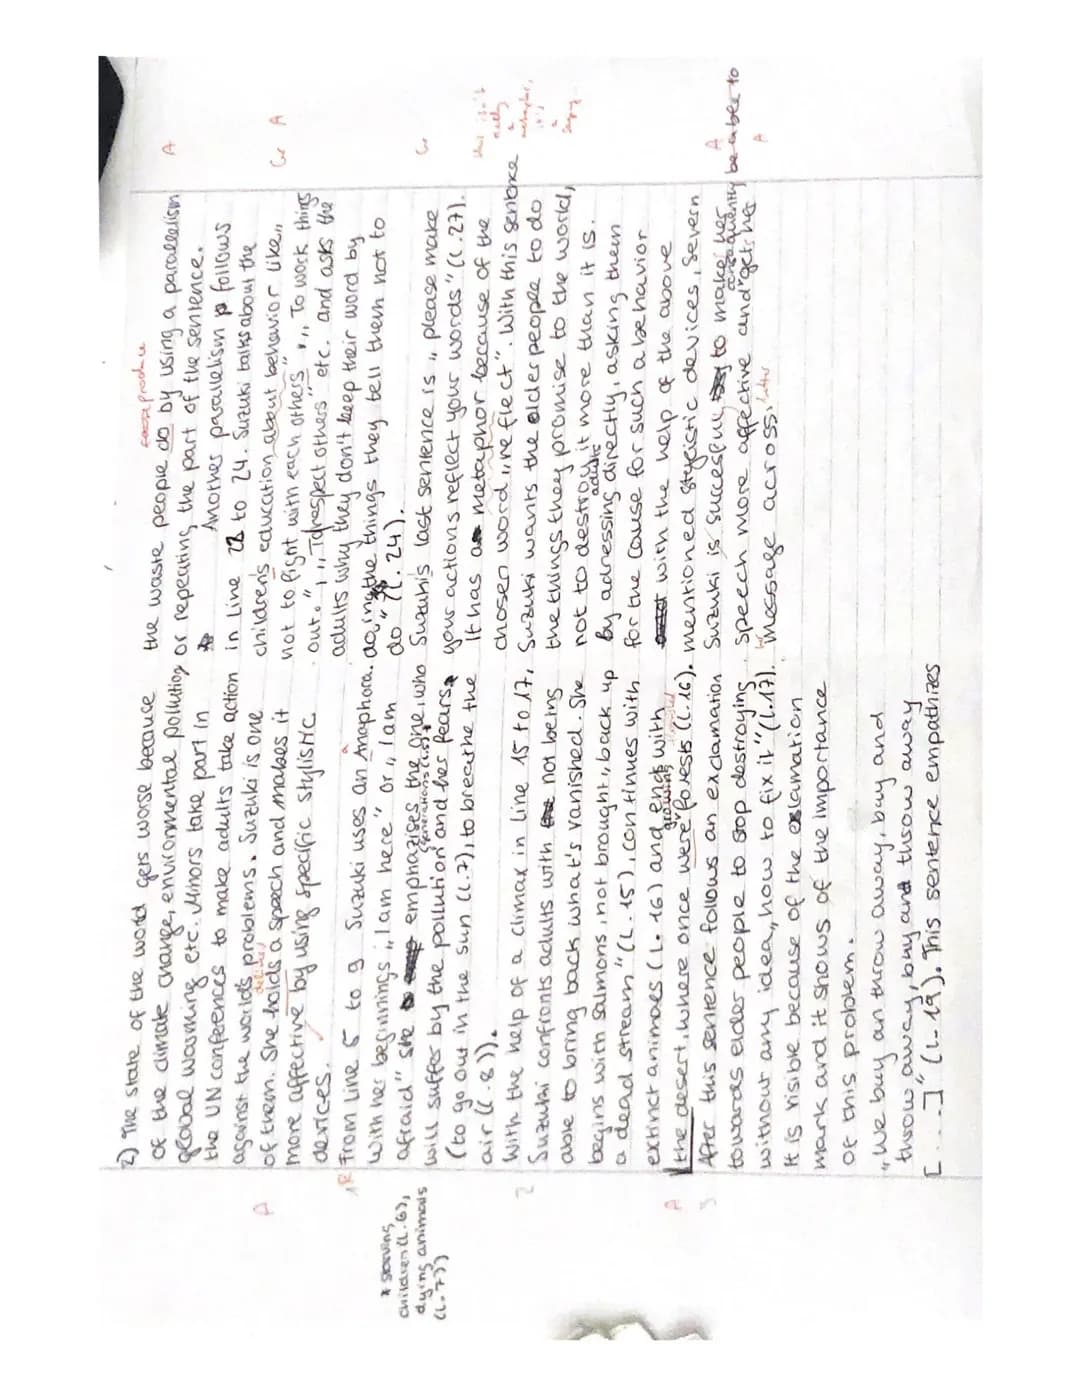 2) The state of the world gets worse because
of the climate change, environmental pollution
global warming etc. Minors take part in
the UN conferences to make adults take action
against the worlds problems. Suzuki is one
of them. She holds a speech and makes it
delivers
more affective by using specific stylistic
devices.
From Line 5 to 9 Suzuki uses an Anaphora.
With her beginnings „I am here" or „I am
afraid" she emphazises the one, who
generations
will suffer by the pollution and her fears*
(to go out in the sun (l.7), to breathe the
air (l.8)).
With the help of a climax in line 15 to 17,
Suzuki confronts adults with not being
able to bring back what's vanished. She
begins with salmons, not brought „back up
a dead stream" (L.15), continues with
extinct animoes (L.16) and ends with
growing
the desert „where once were forests" (l.16).
After this sentence follows an exclamation
towards elder people to stop destroying
without any idea „how to fix it" (l.17).
It is visible because of the exlamation
mark and it shows of the importance
of this problem.
„We buy an throw away, buy and
throw away, buy and throw away
[....]" (L.19). This sentence empathizes
* starving
children (L.6),
dying animals
(L.7))
A
R
2
A
3
produce
the waste people do by using a parallelism
or repeating the part of the sentence.
Another parallelism follows
in Line 23 to 24. Suzuki talks about the
children's education about behavior like „
not to fight with each others", „To work things
out.", „To respect others" etc. and asks the
adults why they don't keep their word by
doing the things they tell them not to
do" (l.24).
Suzuki's last sentence is „please make
your actions reflect your words" (l.27).
It has a metaphor because of the
chosen word „reflect". With this sentence
Suzuki wants the older people to do
the things they promise to the world,
not to destroy it more than it is.
adults
By adressing directly, asking them
for the cause for such a behavior
with the help of the above
mentioned stylistic devices, Severn
Suzuki is succesfully to make her
consequently be able to
speech more affective and gets her
message across.
better
A
Gr A
Gr
this isn't
really
a
metaphor,
it's
a
A
A